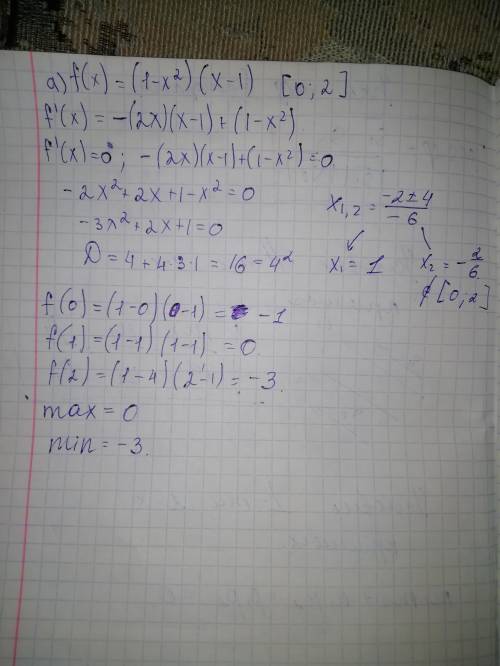 а) f(x) = (1-x²)(x-1) [0; 2]
f'(x) = -(2x)(x-1) + (1-x²)
f'(x)=0; -(2x)(x-1)+(1-x²)=0
-2x²+2x+1-x²=0
-3x²+2x+1=0
D = 4+4·3·1 = 16 = 4²
x₁,₂ = (-2±4)/(-6)
x₁ = 1 x₂ = -2/6
∉ [0; 2]
f(0) = (1-0)(0-1) = -1
f(1) = (1-1)(1-1) = 0
f(2) = (1-4)(2-1) = -3
max = 0
min = -3.